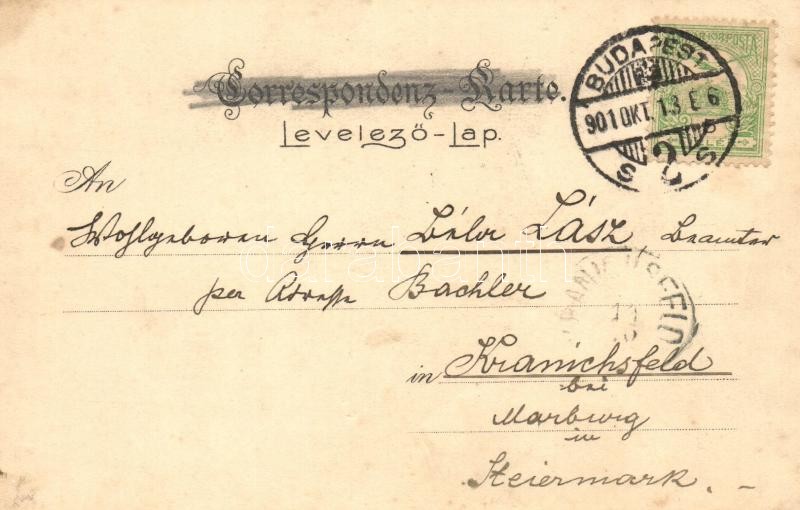 Correspondenz-Karte.
Levelező-Lap.
BUDAPEST
901 OKT. 13 E 6
An
Wohlgeboren Herrn Béla Lász Beamter
per Adresse Bachler
in Kranichsfeld
bei
Marburg
in
Steiermark.
darabanth